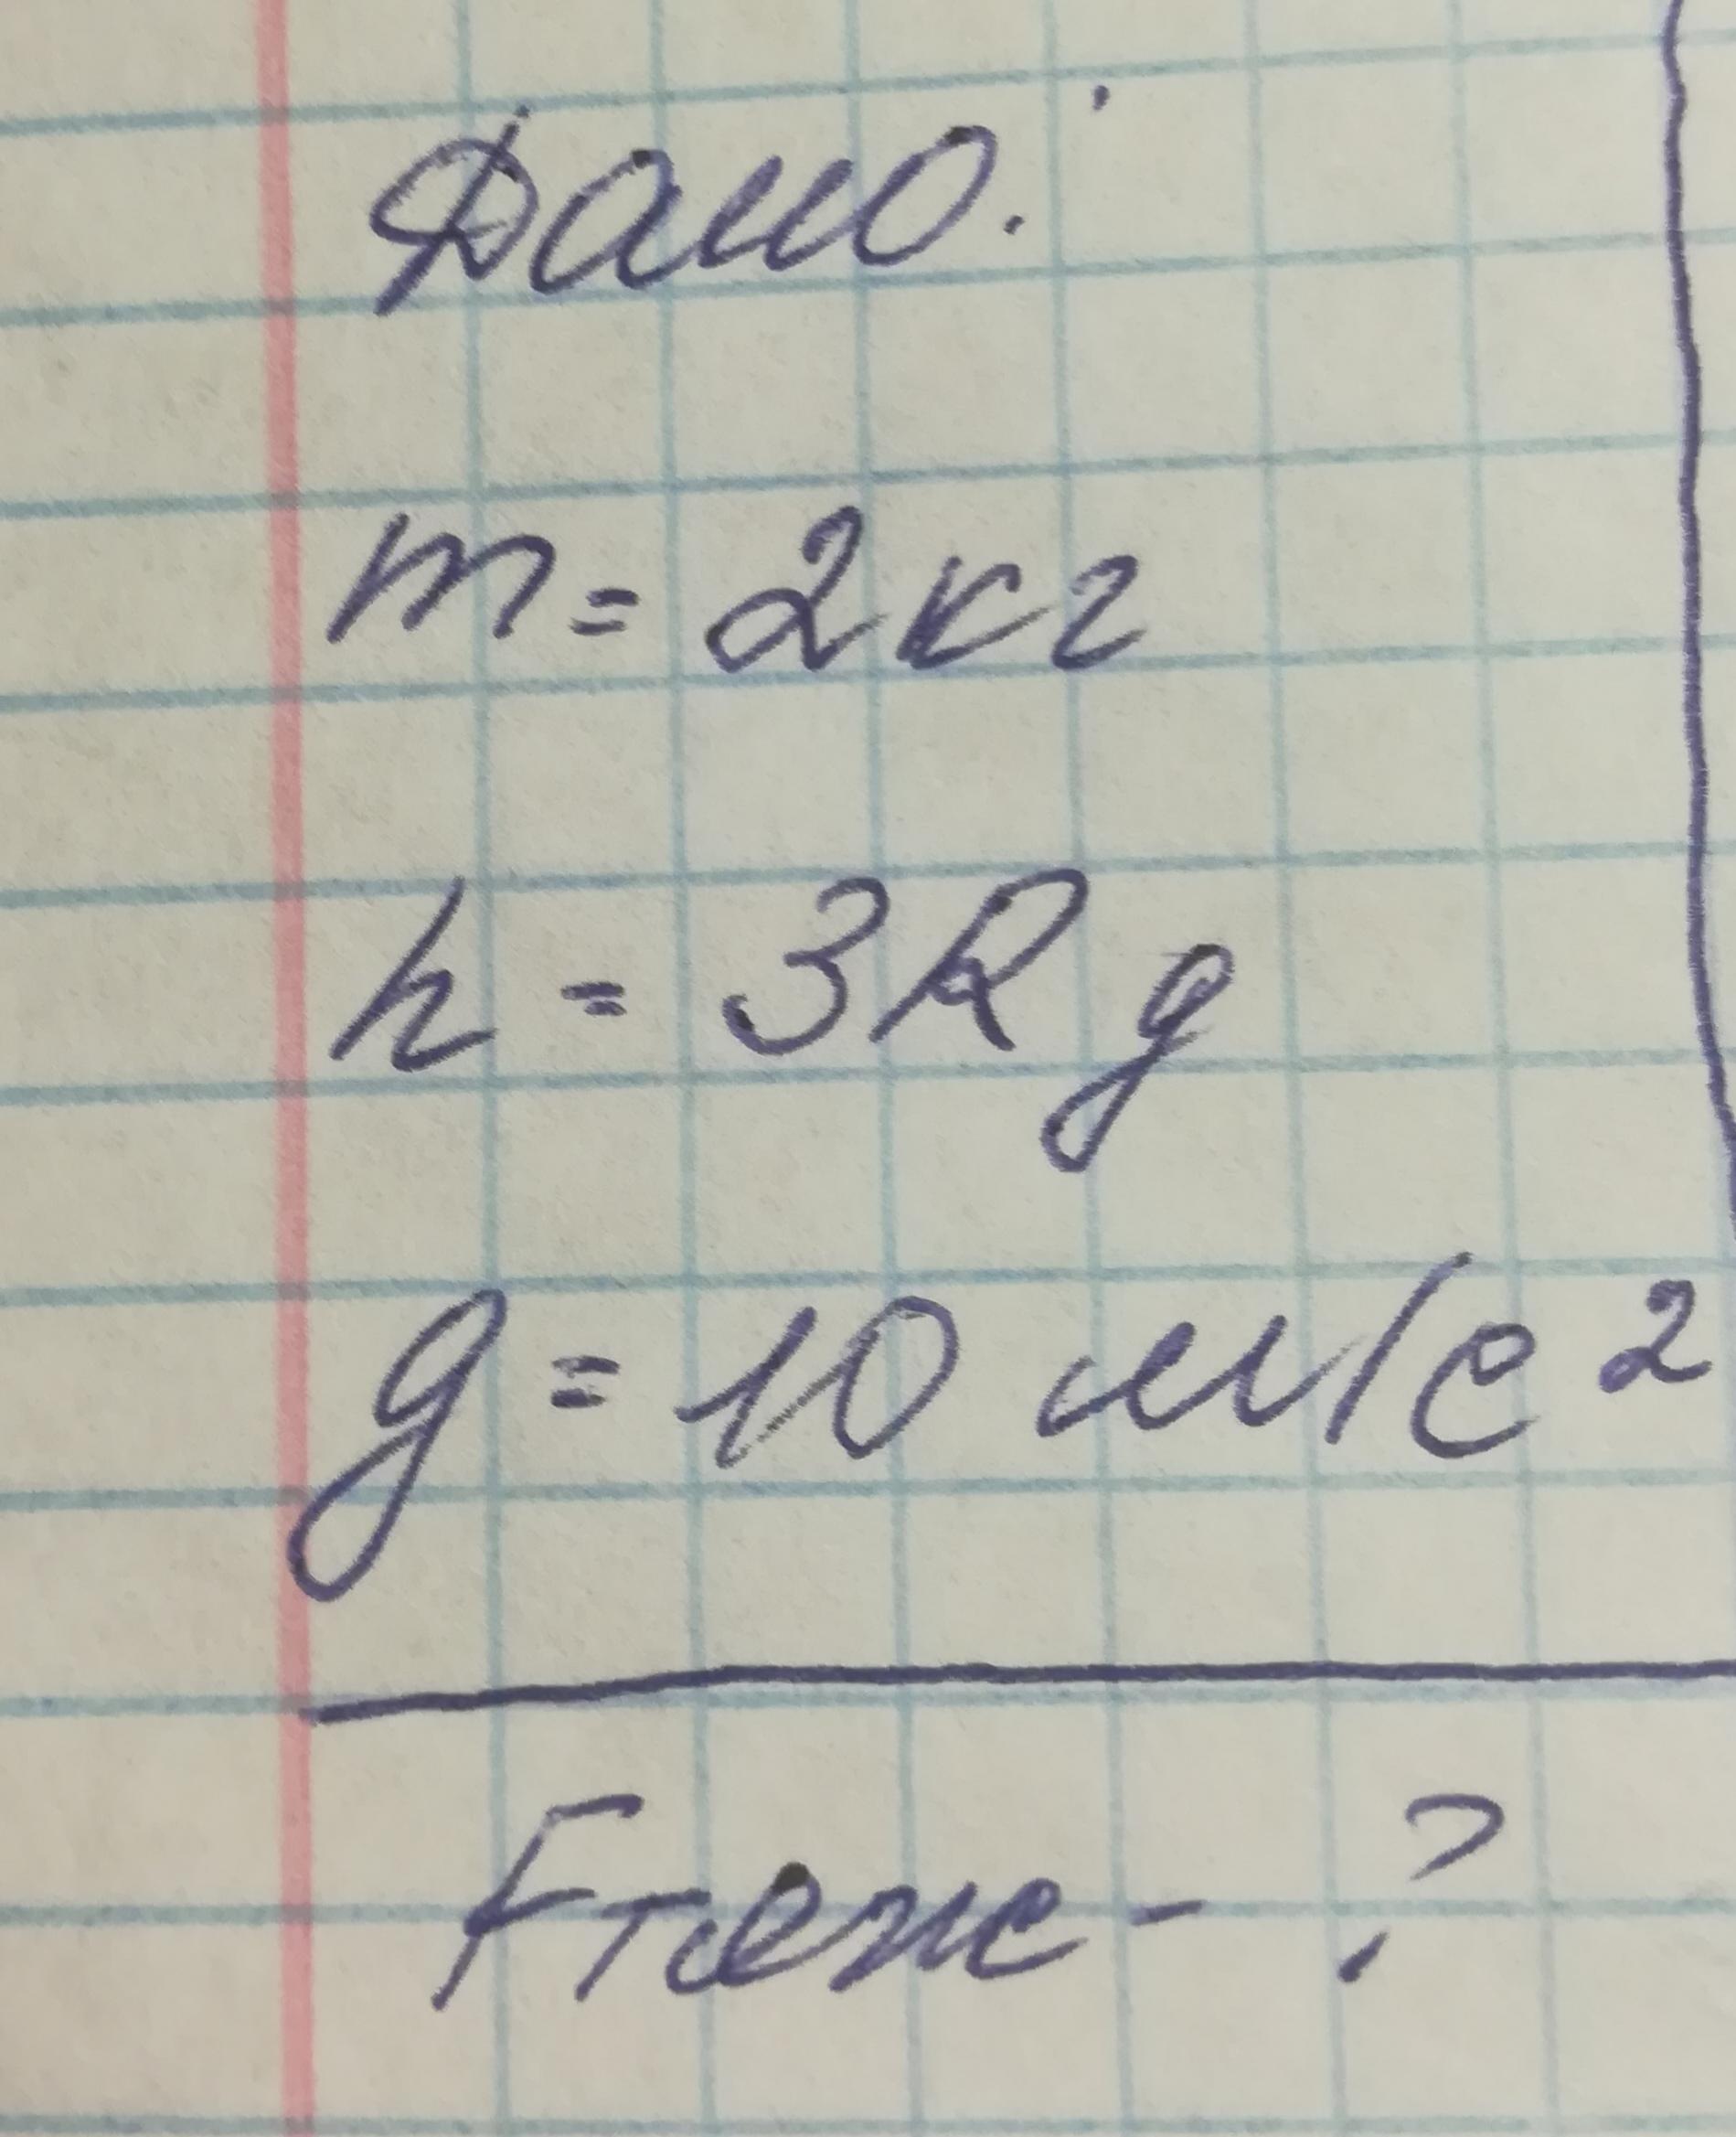 Дано:
m = 2 кг
h = 3R g
g = 10 м/с²
Fтяж - ?